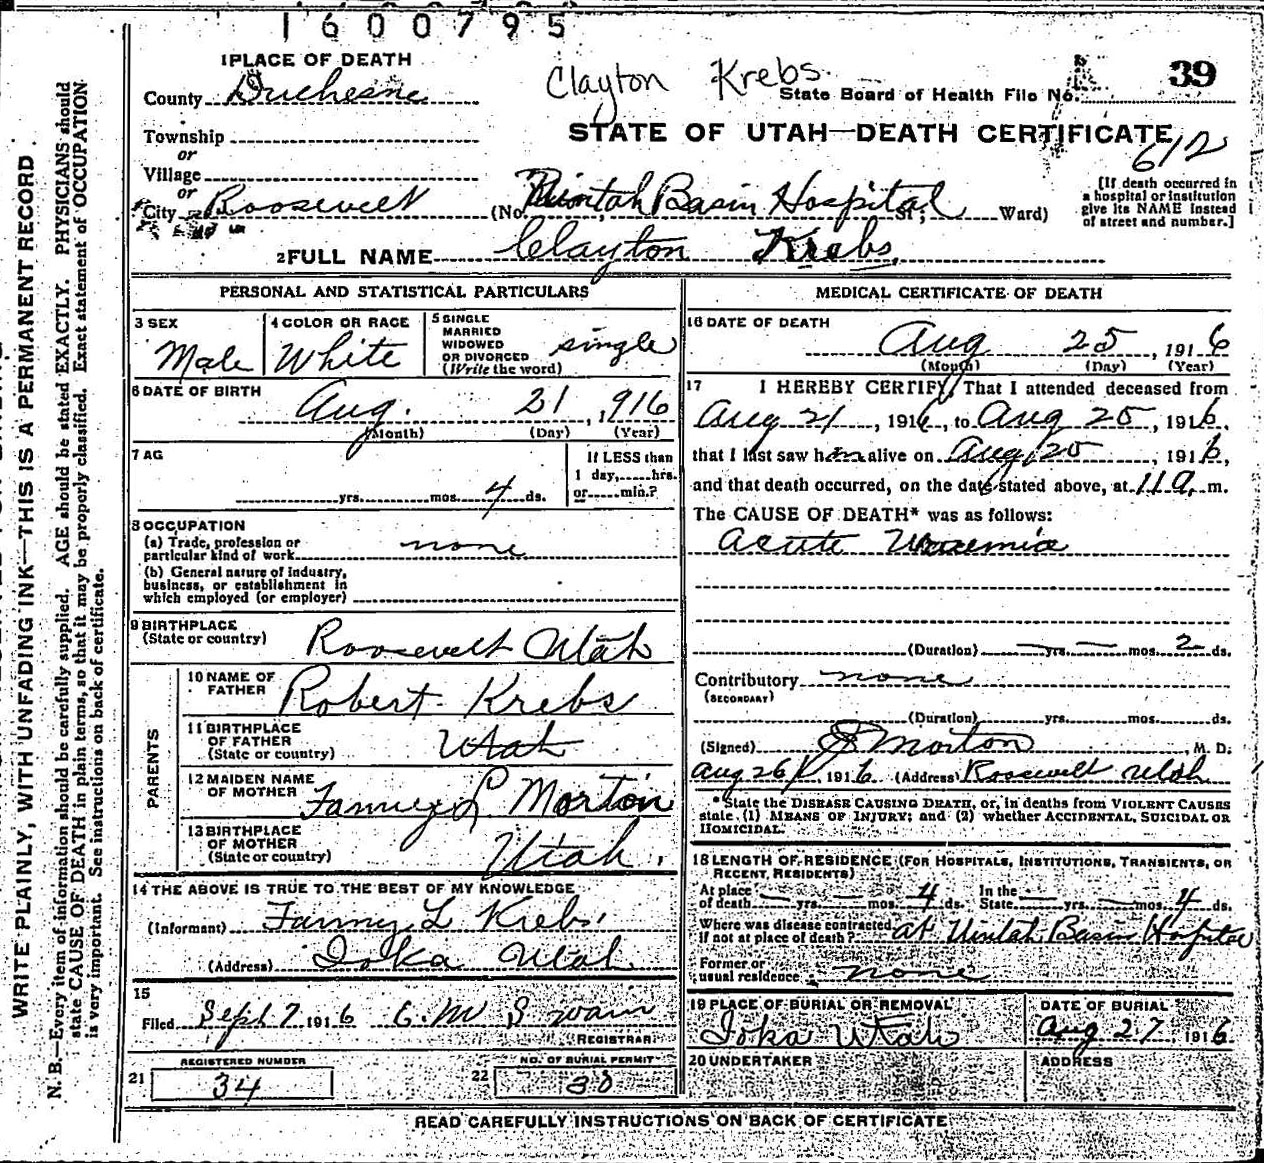 1600795
1 PLACE OF DEATH
Clayton Krebs.
39
County Duchesne
State Board of Health File No.
Township
STATE OF UTAH—DEATH CERTIFICATE
or
612
Village
or
City Roosevelt
(No. Uintah Basin Hospital St.; Ward)
[If death occurred in
a hospital or institution
give its NAME instead
of street and number.]
2 FULL NAME Clayton Krebs.
PERSONAL AND STATISTICAL PARTICULARS
3 SEX
Male
4 COLOR OR RACE
White
5 SINGLE
MARRIED
WIDOWED
OR DIVORCED
(Write the word)
single
6 DATE OF BIRTH
Aug. 21, 916
(Month) (Day) (Year)
7 AG
yrs. mos. 4 ds.
If LESS than
1 day, hrs.
or min.?
8 OCCUPATION
(a) Trade, profession or
particular kind of work none
(b) General nature of industry,
business, or establishment in
which employed (or employer)
9 BIRTHPLACE
(State or country) Roosevelt Utah
PARENTS
10 NAME OF
FATHER Robert Krebs
11 BIRTHPLACE
OF FATHER
(State or country) Utah
12 MAIDEN NAME
OF MOTHER Fanny L Morton
13 BIRTHPLACE
OF MOTHER
(State or country) Utah.
14 THE ABOVE IS TRUE TO THE BEST OF MY KNOWLEDGE
(Informant) Fanny L Krebs.
(Address) Ioka Utah
15
Filed Sept 7 1916 C. M Swain
REGISTRAR
REGISTERED NUMBER
21 34
NO. OF BURIAL PERMIT
22 30
MEDICAL CERTIFICATE OF DEATH
16 DATE OF DEATH
Aug 25, 1916
(Month) (Day) (Year)
17 I HEREBY CERTIFY, That I attended deceased from
Aug 21, 1916, to Aug 25, 1916,
that I last saw him alive on Aug 25, 1916,
and that death occurred, on the date stated above, at 11 a. m.
The CAUSE OF DEATH* was as follows:
Acute Uraemia
(Duration) yrs. mos. 2 ds.
Contributory none
(SECONDARY)
(Duration) yrs. mos. ds.
(Signed) Morton, M. D.
Aug 26, 1916 (Address) Roosevelt Utah
*State the DISEASE CAUSING DEATH, or, in deaths from VIOLENT CAUSES
state (1) MEANS OF INJURY; and (2) whether ACCIDENTAL, SUICIDAL OR
HOMICIDAL.
18 LENGTH OF RESIDENCE (FOR HOSPITALS, INSTITUTIONS, TRANSIENTS, OR
RECENT RESIDENTS)
At place
of death yrs. mos. 4 ds.
In the
State yrs. mos. 4 ds.
Where was disease contracted
if not at place of death? at Uintah Basin Hospital
Former or
usual residence none
19 PLACE OF BURIAL OR REMOVAL
Ioka Utah
DATE OF BURIAL
Aug 27, 1916
20 UNDERTAKER
ADDRESS
READ CAREFULLY INSTRUCTIONS ON BACK OF CERTIFICATE
WRITE PLAINLY, WITH UNFADING INK—THIS IS A PERMANENT RECORD.
N. B.—Every item of information should be carefully supplied. AGE should be stated EXACTLY. PHYSICIANS should
state CAUSE OF DEATH in plain terms, so that it may be properly classified. Exact statement of OCCUPATION
is very important. See instructions on back of certificate.